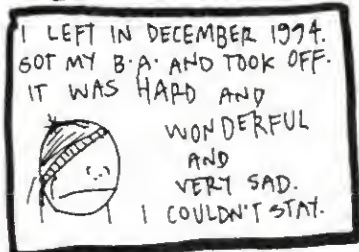 I LEFT IN DECEMBER 1994.
GOT MY B.A. AND TOOK OFF.
IT WAS HARD AND
WONDERFUL
AND
VERY SAD.
I COULDN'T STAY.